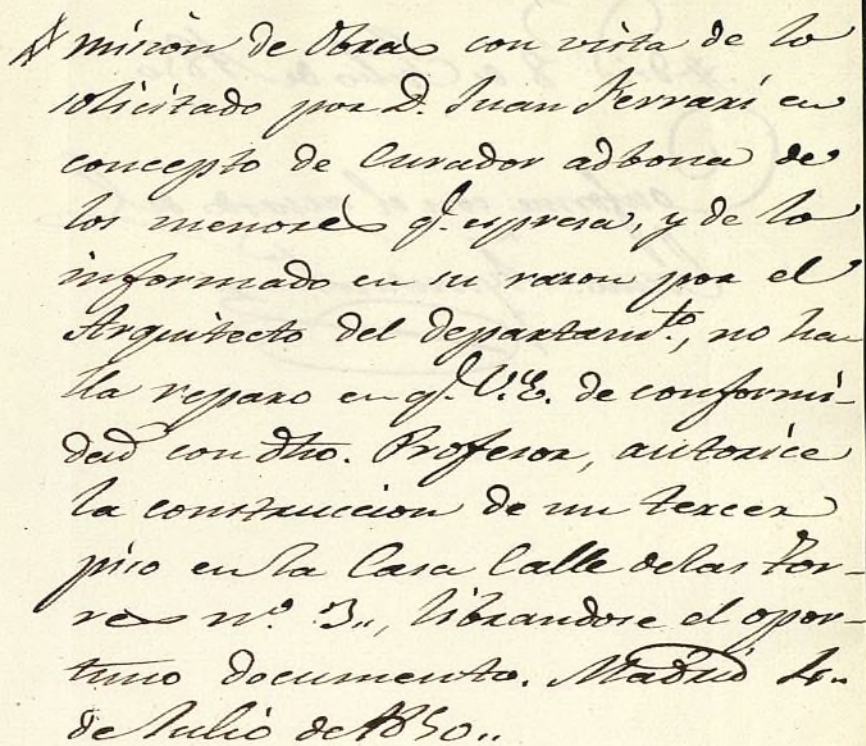 mision de Obras con vista de lo
solicitado por D. Juan Ferrari en
concepto de Curador adbona de
los menores q.e espresa, y de lo
informado en su razon por el
Arquitecto del departam.to, no ha-
lla reparo en q.e V.E. de conformi-
dad con dho. Profesor, autorice
la construccion de un tercer
piso en la Casa Calle delas Tor-
res n.o 3,, librandose el opor-
tuno documento. Madrid 4,,
de Julio de 1850,,